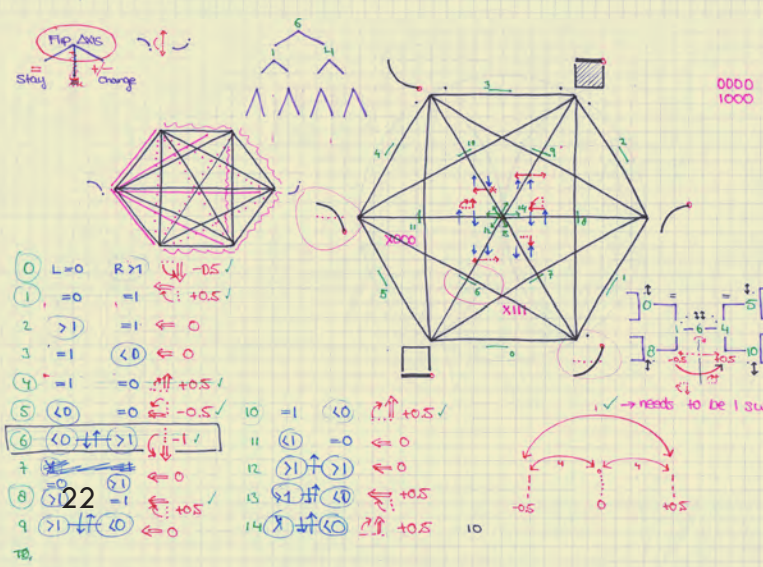 Flip Axis
= +/-
Stay change
6
1 4
0000
1000
3
4 2
12 9
11 8
X000
5 1
6 7
XIII
0
0 L=0 R>1 -0.5 ✓
1 =0 =1 +0.5 ✓
2 >1 =1 ⇐ 0
3 =1 <0 ⇐ 0
4 =1 =0 +0.5 ✓
5 <0 =0 -0.5 ✓
6 <0 >1 -1 ✓
7 =0 >1 ⇐ 0
8 >1 =1 +0.5 ✓
9 >1 <0 ⇐ 0
22
10 =1 <0 +0.5 ✓
11 <1 =0 ⇐ 0
12 >1 >1 ⇐ 0
13 >1 <0 +0.5
14 <0 +0.5
10
0 = = 5
1 - 6 - 4
8 -0.5 +0.5 10
1 ✓ → needs to be 1 su
4 4
-0.5 0 +0.5